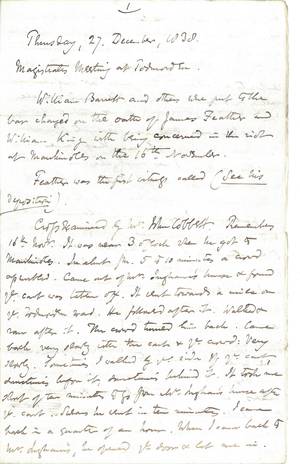 1
Thursday, 27. December, 1838.
Magistrates Meeting at Todmorden.
William Barrett and others were put to the
bar charged on the oaths of James Feather and
William King with being concerned in the riot
at Mankinholes on the 16th November.
Feather was the first witness called (See his
deposition).
Cross examined by Mr. John Cobbett. Remembers
16th Novr. It was near 3 o'clock when he got to
Mankinholes. In about 5 to 10 minutes a crowd
assembled. Came out of Mrs. Ingham's house & found
ye. cart was taken off. It went towards a mile on
ye. Todmorden road. He followed after it. Walked &
ran after it. The crowd turned him back. Came
back very slowly with the carts & ye. crowd. Very
slowly. Sometimes I walked by ye. side of ye. cart
sometimes before it, sometimes behind it. It took me
short of ten minutes to go from Mrs. Ingham's house after
ye. cart. in ten minutes. I came
back in a quarter of an hour. When I came back to
Mrs. Ingham's, he opened ye. door & let me in.